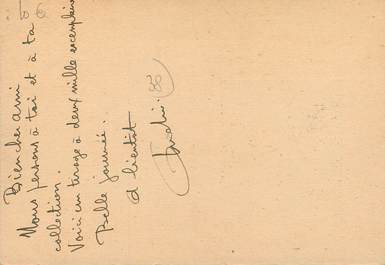 Bien cher ami
Nous pensons à toi et à ta
collection.
Voici un tirage à deux mille exemplaires
Belle journée.
A bientôt